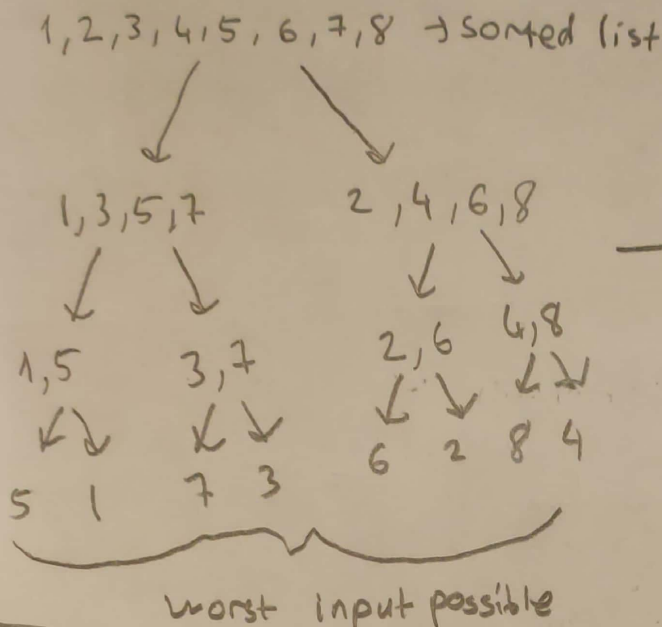 1,2,3,4,5,6,7,8 → sorted list
1,3,5,7 2,4,6,8
1,5 3,7 2,6 4,8
5 1 7 3 6 2 8 4
worst input possible